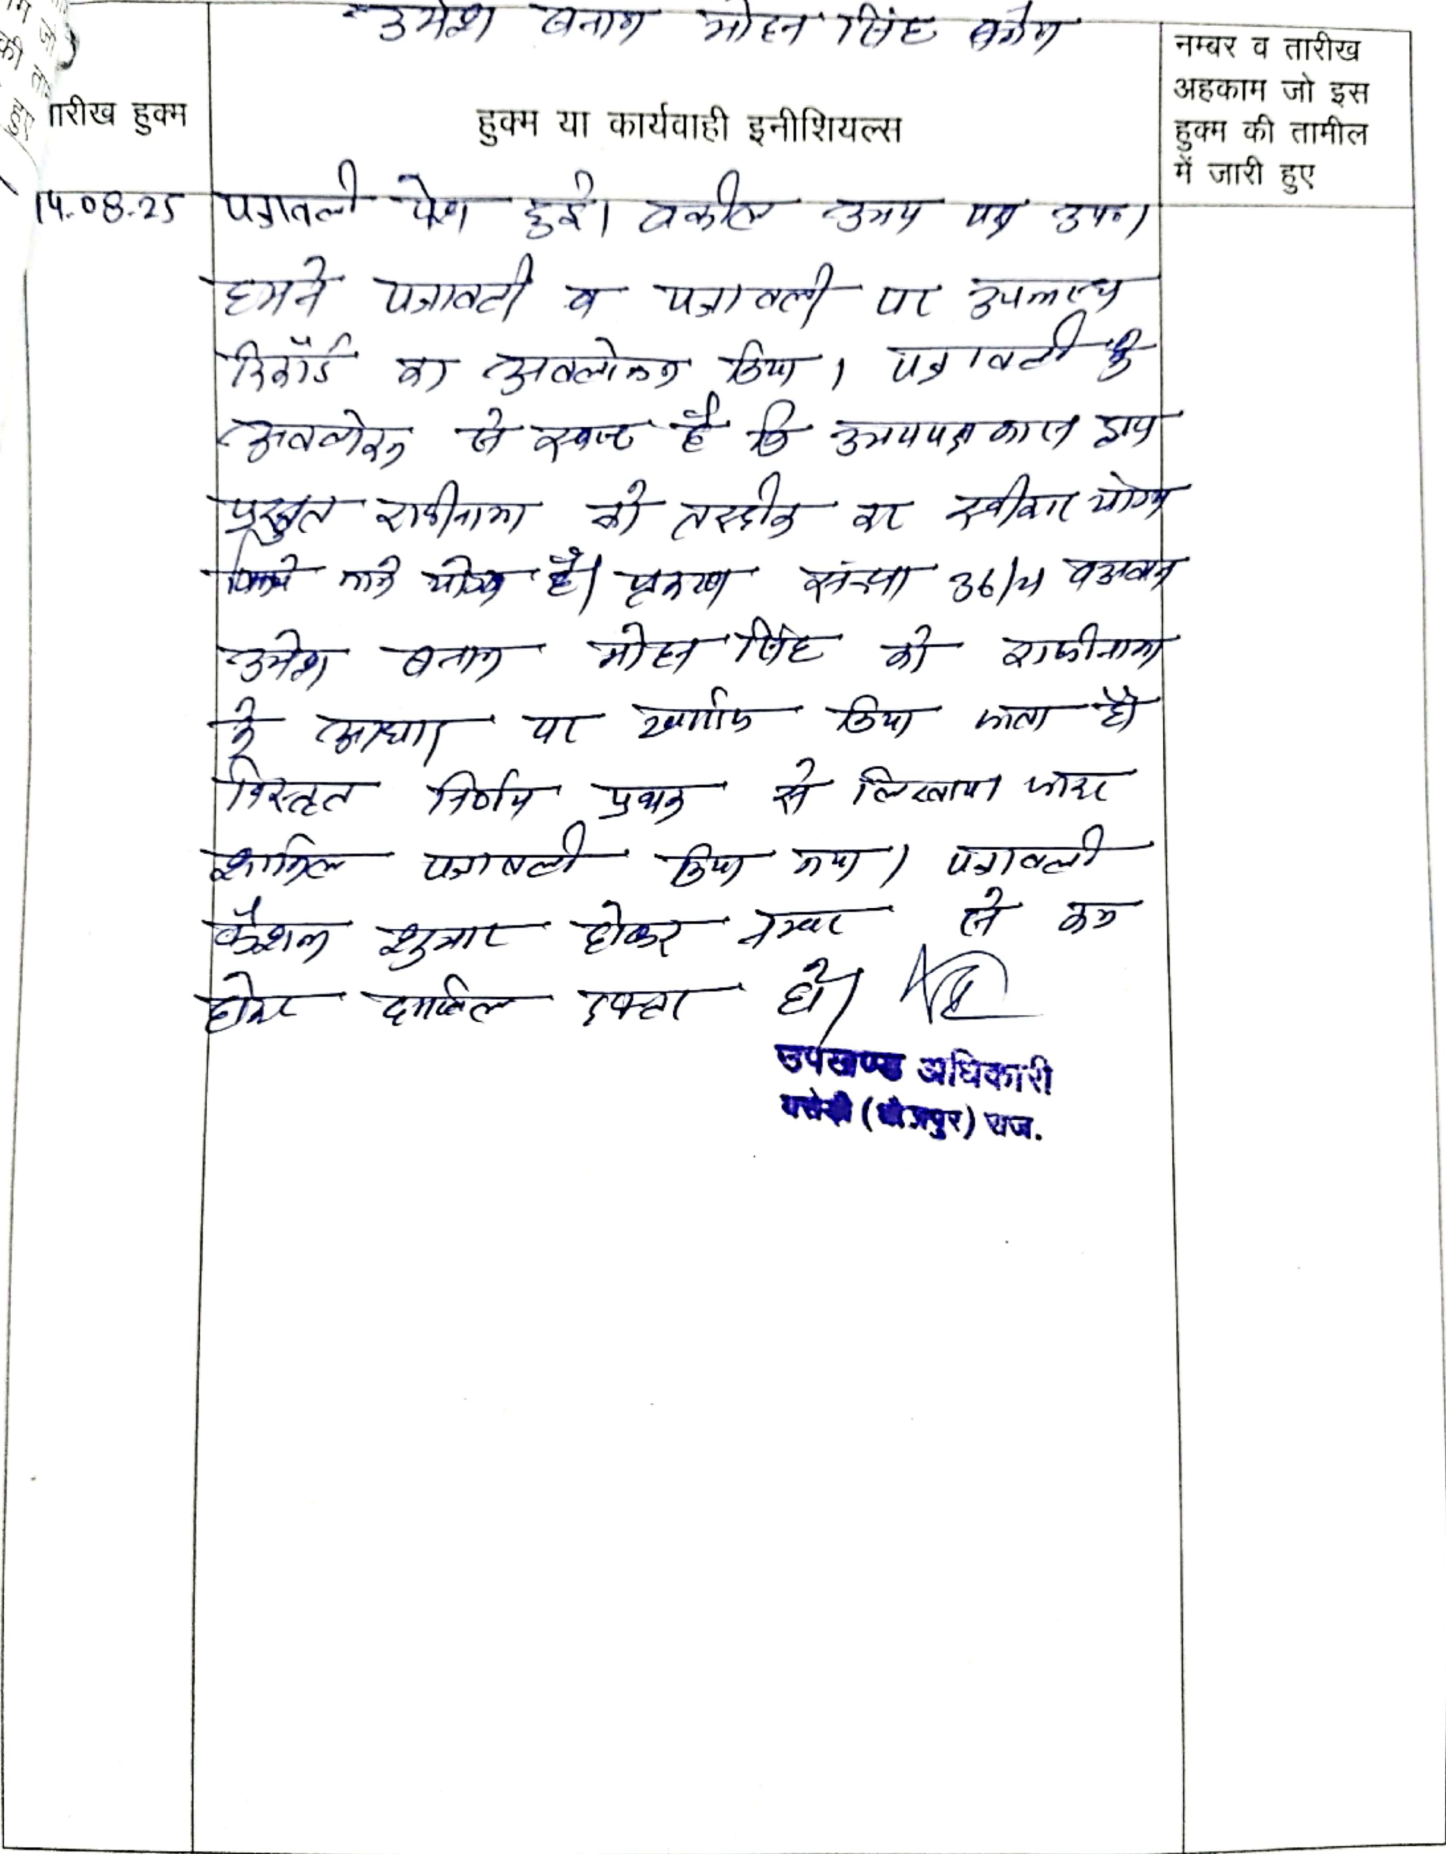 उमेश बनाम मोहन सिंह वगैरा
नम्बर व तारीख
अहकाम जो इस
हुक्म की तामील
में जारी हुए
तारीख हुक्म
हुक्म या कार्यवाही इनीशियल्स
14.08.25 पत्रावली पेश हुई। वकील उभय पक्ष उप०।
हमने पत्रावली व पत्रावली पर उपलब्ध
रिकॉर्ड का अवलोकन किया। पत्रावली के
अवलोकन से स्पष्ट है कि उभयपक्षकारान द्वारा
प्रस्तुत राजीनामा को तस्दीक कर स्वीकार योग्य
किये जाने योग्य है। प्रकरण संख्या 36/21 बउनवान
उमेश बनाम मोहन सिंह को राजीनामा
के आधार पर खारिज किया जाता है।
विस्तृत निर्णय पृथक से लिखाया जाकर
शामिल पत्रावली किया गया। पत्रावली
फैशल शुमार होकर नम्बर से कम
होकर दाखिल दफ्तर हो।
उपखण्ड अधिकारी
बसेड़ी (धौलपुर) राज.